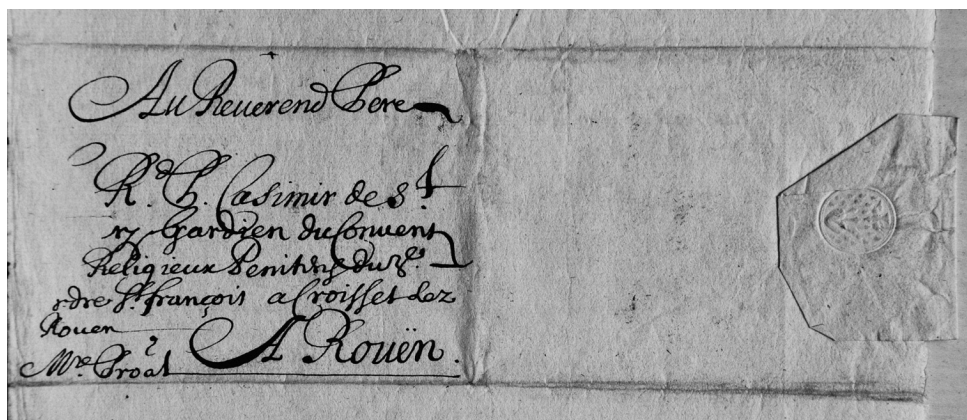 Au Reverend Pere
R.d P. Casimir de S.t
Gardien du Convent
Religieux Penitens du
rdre St. françois a Croisset lez
Rouen
A Rouën.
Mre